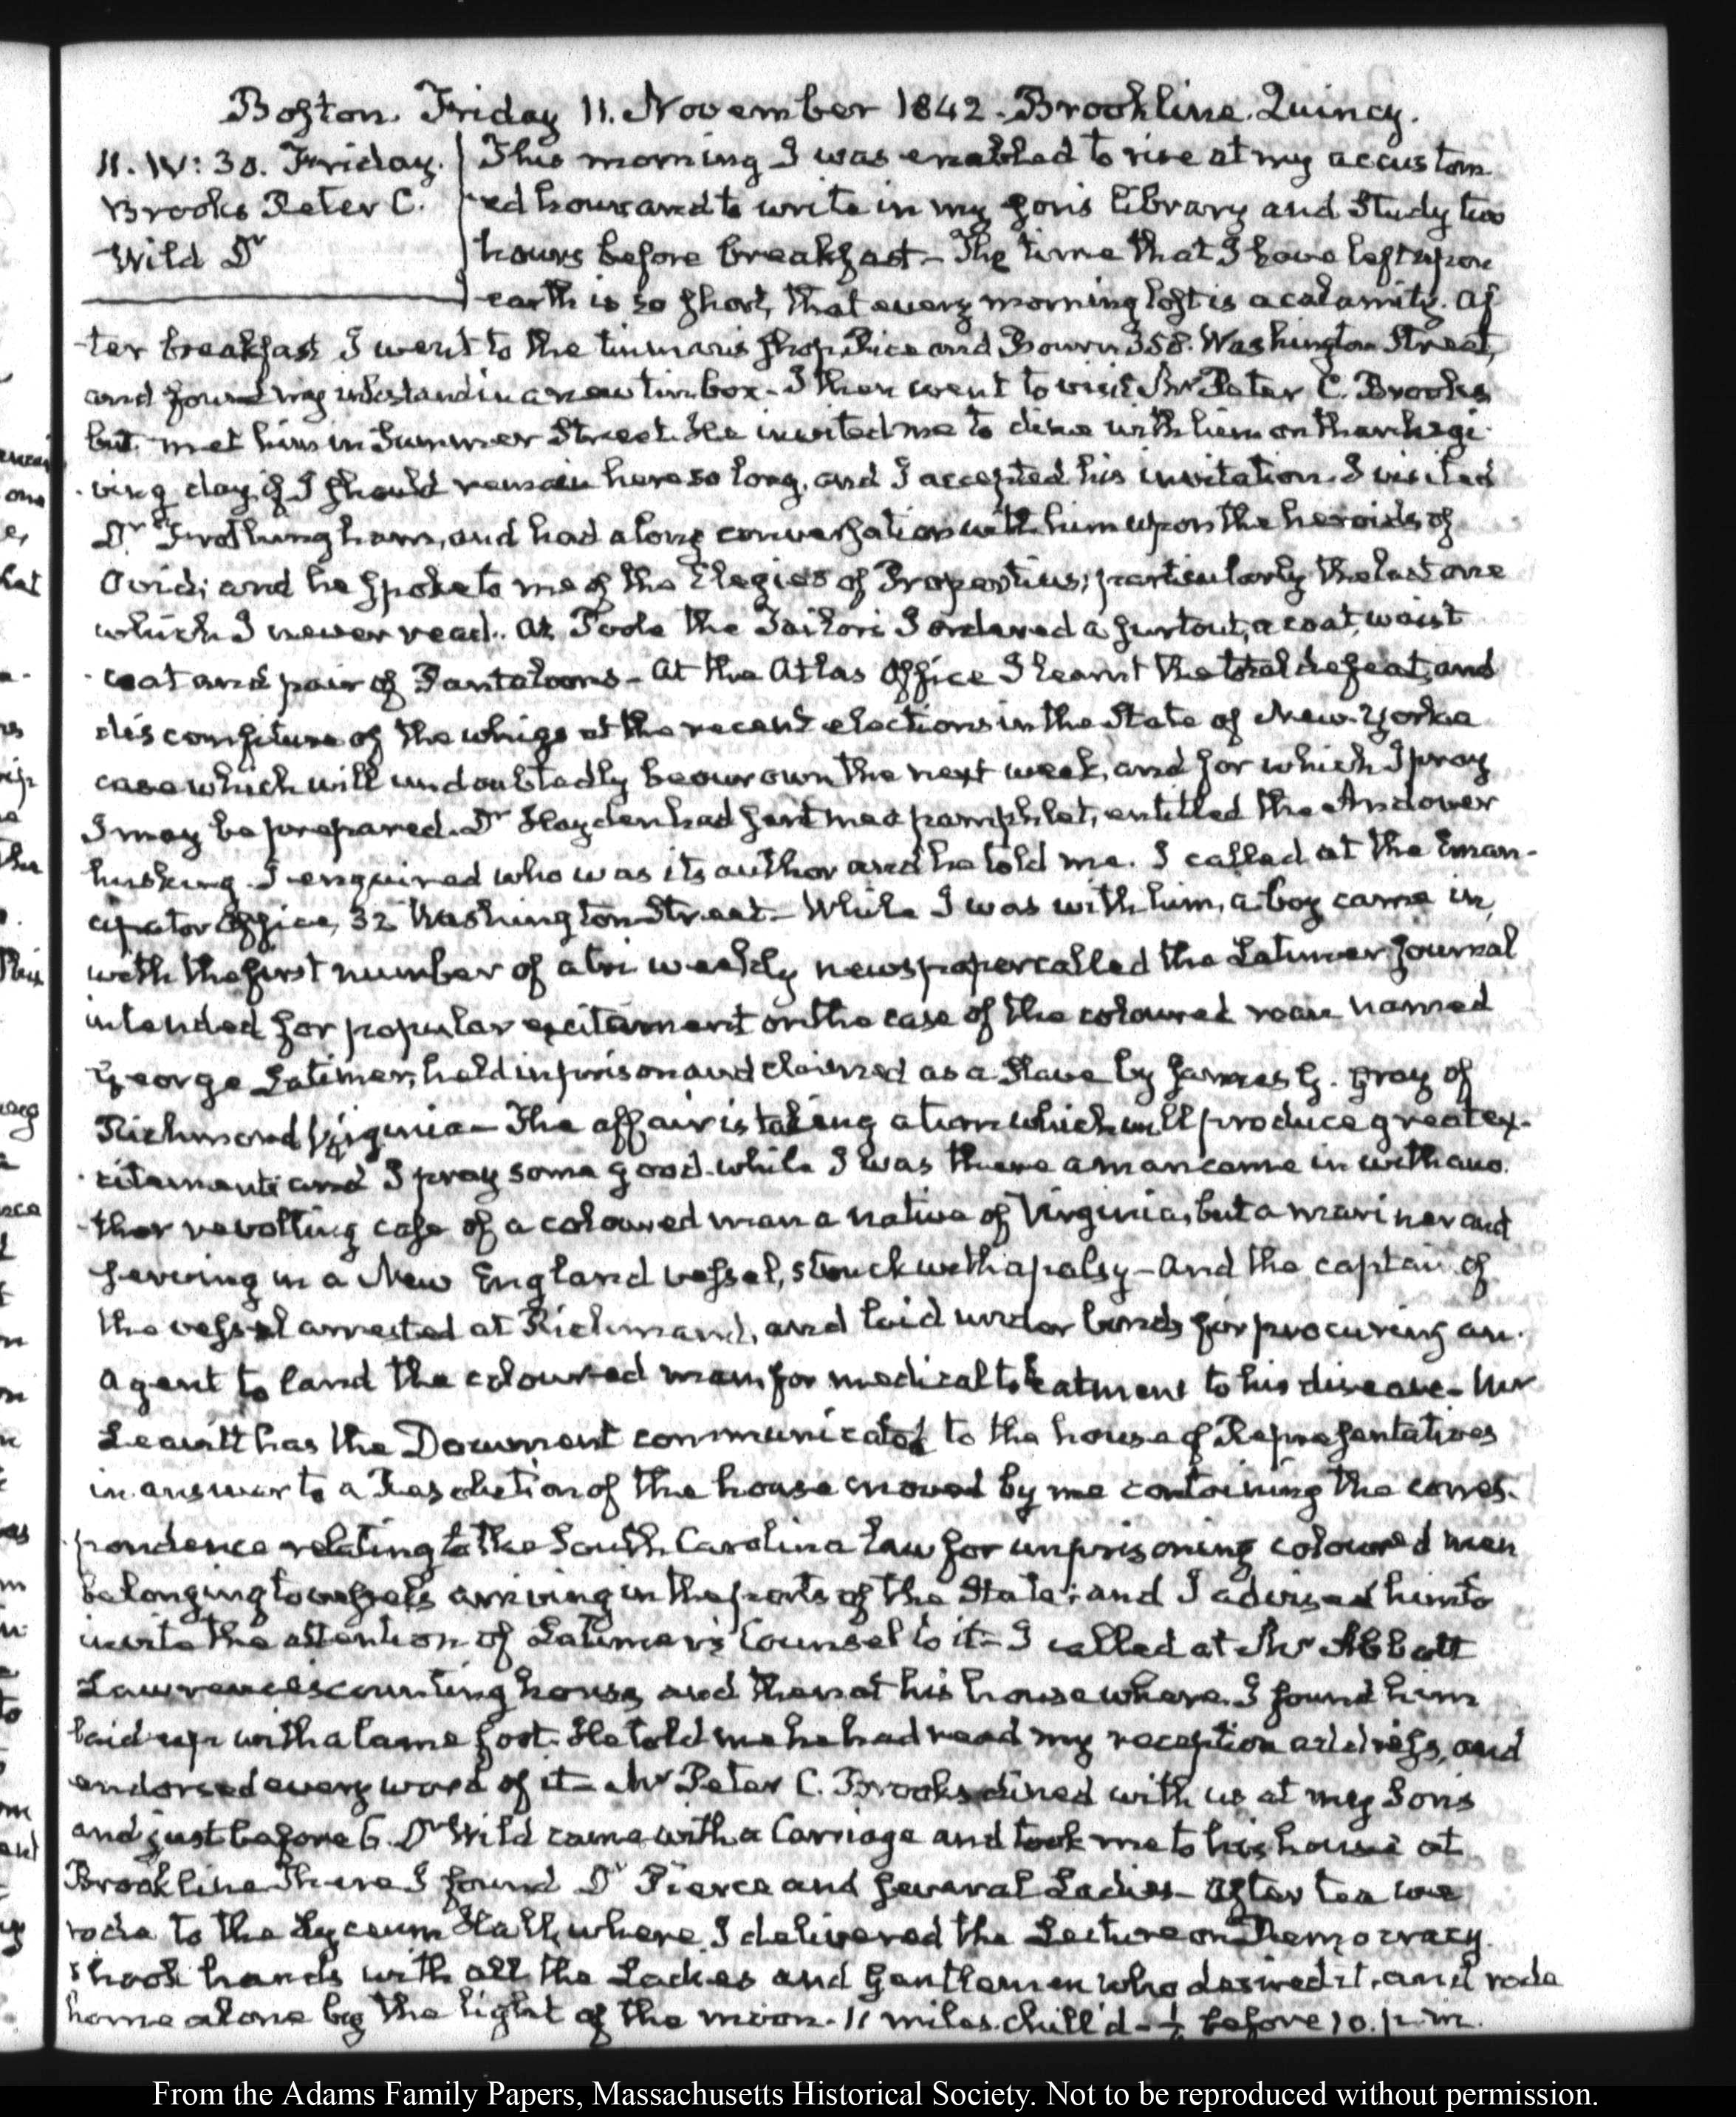 Boston. Friday 11. November 1842. Brookline. Quincy.
11. IV: 30. Friday.
Brooks Peter C.
Wild Dr
This morning I was enabled to rise at my accustom
ed hour and to write in my son's library and Study two
hours before breakfast – The time that I have left upon
earth is so short, that every morning lost is a calamity. Af
-ter breakfast I went to the tinman's shop Rice and Bowen 358. Washington Street,
and found my inkstand in a new tin box – I then went to visit Mr Peter C. Brooks
but met him in Summer Street. He invited me to dine with him on thanksgi-
-ving day if I should remain here so long, and I accepted his invitation. I visited
Dr Frothingham, and had a long conversation with him upon the heroids of
Ovid; and he spoke to me of the Elegies of Propertius; particularly the last one
which I never read. At Poole the Tailors I ordered a surtout, a coat, waist
-coat and pair of Pantaloons – At the Atlas Office I learnt the total defeat, and
discomfiture of the whigs at the recent elections in the State of New-York a
case which will undoubtedly be our own the next week, and for which I pray
I may be prepared. Dr Hayden had sent me a pamphlet, entitled the Andover
husking. I enquired who was its author and he told me. I called at the Eman-
cipator Office, 32 Washington Street – While I was with him, a boy came in,
with the first number of a tri weekly newspaper called the Latimer Journal
intended for popular excitement on the case of the coloured man named
George Latimer, held in prison and claimed as a Slave by James B. Gray of
Richmond Virginia – The affair is taking a turn which will produce great ex-
-citement and I pray some good. while I was there a man came in with ano-
-ther revolting case of a coloured man a native of Virginia, but a mariner and
serving in a New England vessel, struck with a palsy – and the captain of
the vessel arrested at Richmond, and laid under bonds for procuring an
agent to land the coloured man for medical treatment to his disease – Mr
Leavitt has the Document communicated to the house of Representatives
in answer to a Resolution of the house moved by me containing the corres-
-pondence relating to the South Carolina Law for imprisoning coloured men
belonging to vessels arriving in the ports of the State; and I advised him to
invite the attention of Latimer's Counsel to it – I called at Mr Abbott
Lawrence's counting house, and then at his house where I found him
laid up with a lame foot. He told me he had read my reception address, and
endorsed every word of it – Mr Peter C. Brooks dined with us at my Son's
and just before 6. Dr Wild came with a Carriage and took me to his house at
Brookline There I found Dr Pierce and several Ladies – After tea we
rode to the Lyceum Hall, where I delivered the Lecture on Democracy.
shook hands with all the Ladies and Gentlemen who desired it, and rode
home alone by the light of the moon. 11 miles. chill'd – ½ before 10. p.m.
From the Adams Family Papers, Massachusetts Historical Society. Not to be reproduced without permission.